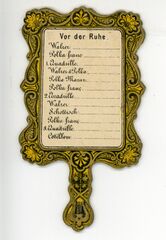 Vor der Ruhe
Walzer
Polka franc
1. Quadrille
Walzer à Polka
Polka Mazur
Polka franç
2. Quadrille
Walzer
Schottisch
Polka franç
3. Quadrille
Cotillon